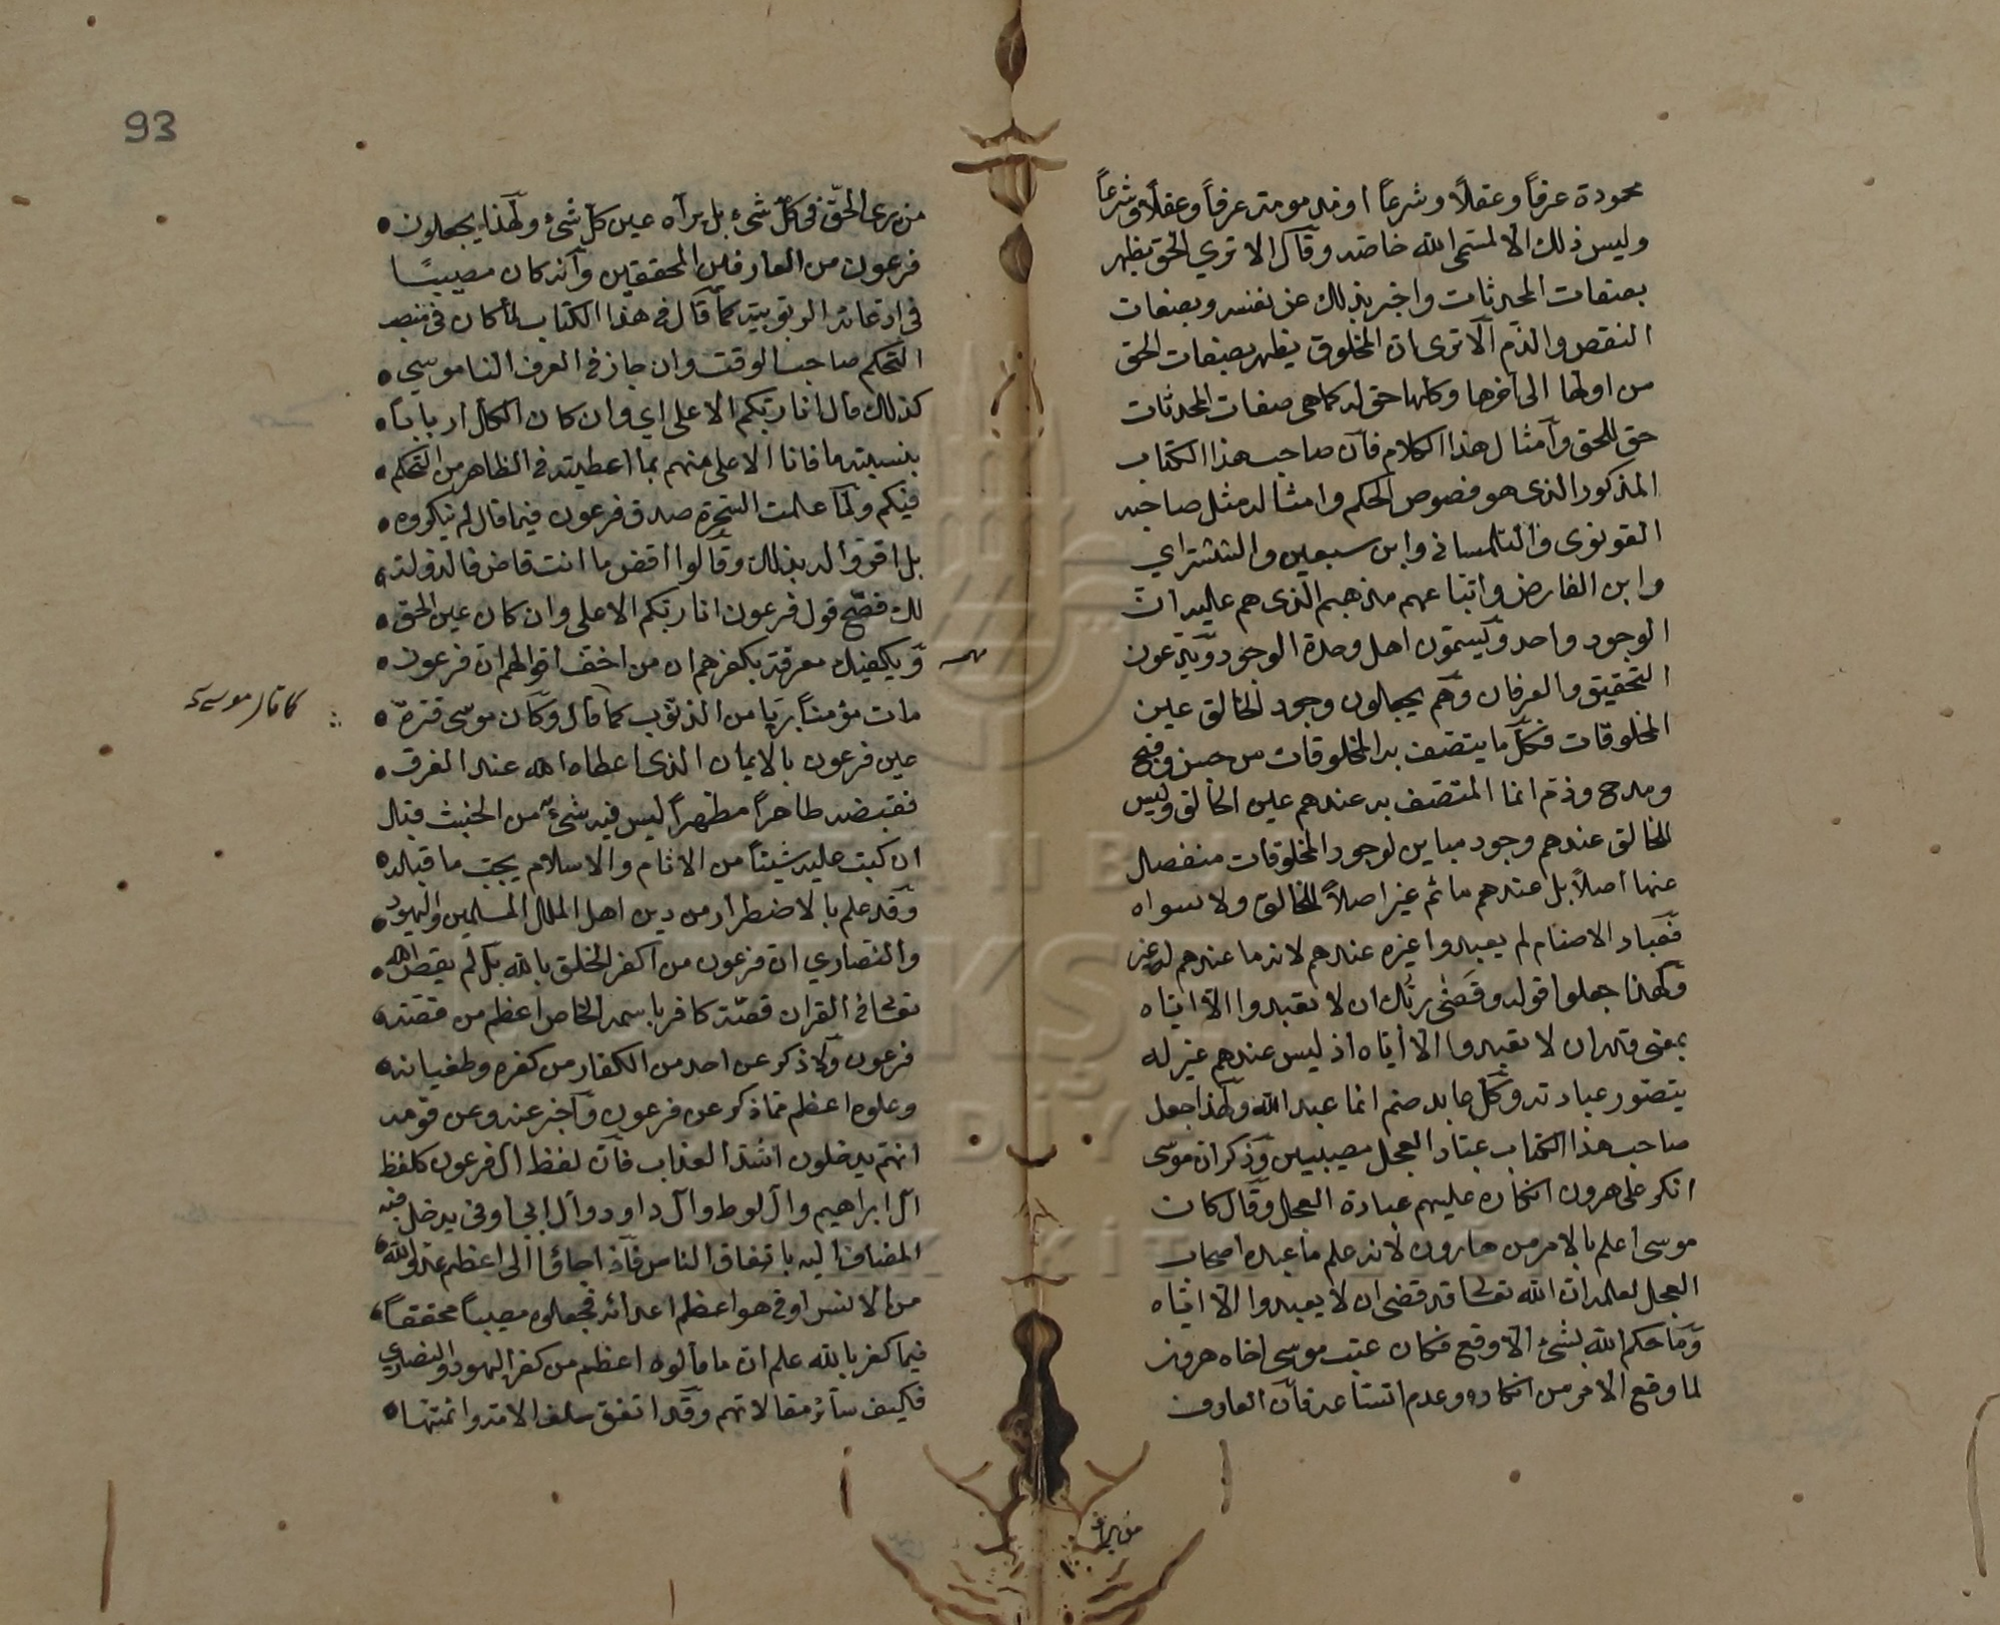 محمودة عرفاً وعقلاً وشرعاً او مذمومة عرفاً وعقلاً وشرعاً
وليس ذلك الا لمسمى الله خاصة وقال الا ترى الحق يظهر
بصفات المحدثات واخبر بذلك عن نفسه وبصفات
النقص والذم الا ترى ان المخلوق يظهر بصفات الحق
من اولها الى آخرها وكلها حق له كما هى صفات المحدثات
حق للحق وامثال هذا الكلام فان صاحب هذا الكتاب
المذكور الذى هو فصوص الحكم وامثاله مثل صاحبه
القونوى والتلمسانى وابن سبعين والششتراي
وابن الفارض واتباعهم مذهبهم الذى هم عليه ان
الوجود واحد ويسمّون اهل وحدة الوجود ويدّعون
التحقيق والعرفان وهم يجعلون وجود الخالق عين
المخلوقات فكل ما يتصف به المخلوقات من حسن وقبح
ومدح وذم انما المتصف به عندهم عين الخالق وليس
للخالق عندهم وجود مباين لوجود المخلوقات منفصل
عنها اصلاً بل عندهم ما ثم غير اصلاً للخالق ولا سواه
فعباد الاصنام لم يعبدوا غيره عندهم لانه ما عندهم له غير
ولهذا جعلوا قوله وقضى ربك ان لا تعبدوا الا اياه
بمعنى قدر ان لا تعبدوا الا اياه اذ ليس عندهم غير له
يتصور عبادته وكل عابد صنم انما عبد الله ولهذا جعل
صاحب هذا الكتاب عباد العجل مصيبين وذكر ان موسى
انكر على هرون انكاره عليهم عبادة العجل وقال كان
موسى اعلم بالامر من هارون لانه علم ما عبده اصحاب
العجل لعلمه ان الله تعالى قد قضى ان لا يعبدوا الا اياه
وما حكم الله بشئ الا وقع فكان عتب موسى اخاه هرون
لما وقع الامر من انكاره وعدم اتساعه فان العارف
من يرى
93
من يرى الحق فى كل شئ بل يراه عين كل شئ ولهذا يجعلون
فرعون من العارفين المحققين وانه كان مصيبًا
فى ادعائه الربوبية كما قال فى هذا الكتاب لما كان فى منصب
التحكم صاحب الوقت وان جاز فى العرف الناموسي
كذلك قال انا ربكم الاعلى اي وان كان الكل ارباباً
بنسبة ما فانا الاعلى منهم بما اعطيته فى الظاهر من التحكم
فيكم ولما علمت السحرة صدق فرعون فيما قال لم ينكروه
بل اقروا له بذلك وقالوا اقض ما انت قاض فالدولة
لك فصح قول فرعون انا ربكم الاعلى وان كان عين الحق
ويكفيك معرفة بكفرهم ان من اخف اقوالهم ان فرعون
مات مؤمناً بريا من الذنوب كما قال وكان موسى قرة
عين فرعون بالايمان الذى اعطاه الله عند الغرق
فقبضه طاهراً مطهراً ليس فيه شئ من الخبث قبل
ان كتب عليه شيئاً من الاثام والاسلام يجب ما قبله
وقد علم بالاضطرار من دين اهل الملل المسلمين واليهود
والنصاري ان فرعون من اكفر الخلق بالله بل لم يقص الله
تعالى فى القران قصة كافر باسمه الخاص اعظم من قصة
فرعون ولا ذكر عن احد من الكفار من كفره وطغيانه
وعلوه اعظم مما ذكر عن فرعون واخبر عنه وعن قومه
انهم يدخلون اشد العذاب فان لفظ آل فرعون كلفظ
آل ابراهيم وآل لوط وآل داود وآل ابى اوفى يدخل فيه
المضاف اليه باتفاق الناس فاذا جاؤا الى اعظم عدو لله
من الانس او فى هو اعظم اعدائه فجعلوه مصيباً محققاً
فيما كفر بالله علم ان ما قالوه اعظم من كفر اليهود والنصارى
فكيف سائر مقالاتهم وقد اتفق سلف الامة وائمتها